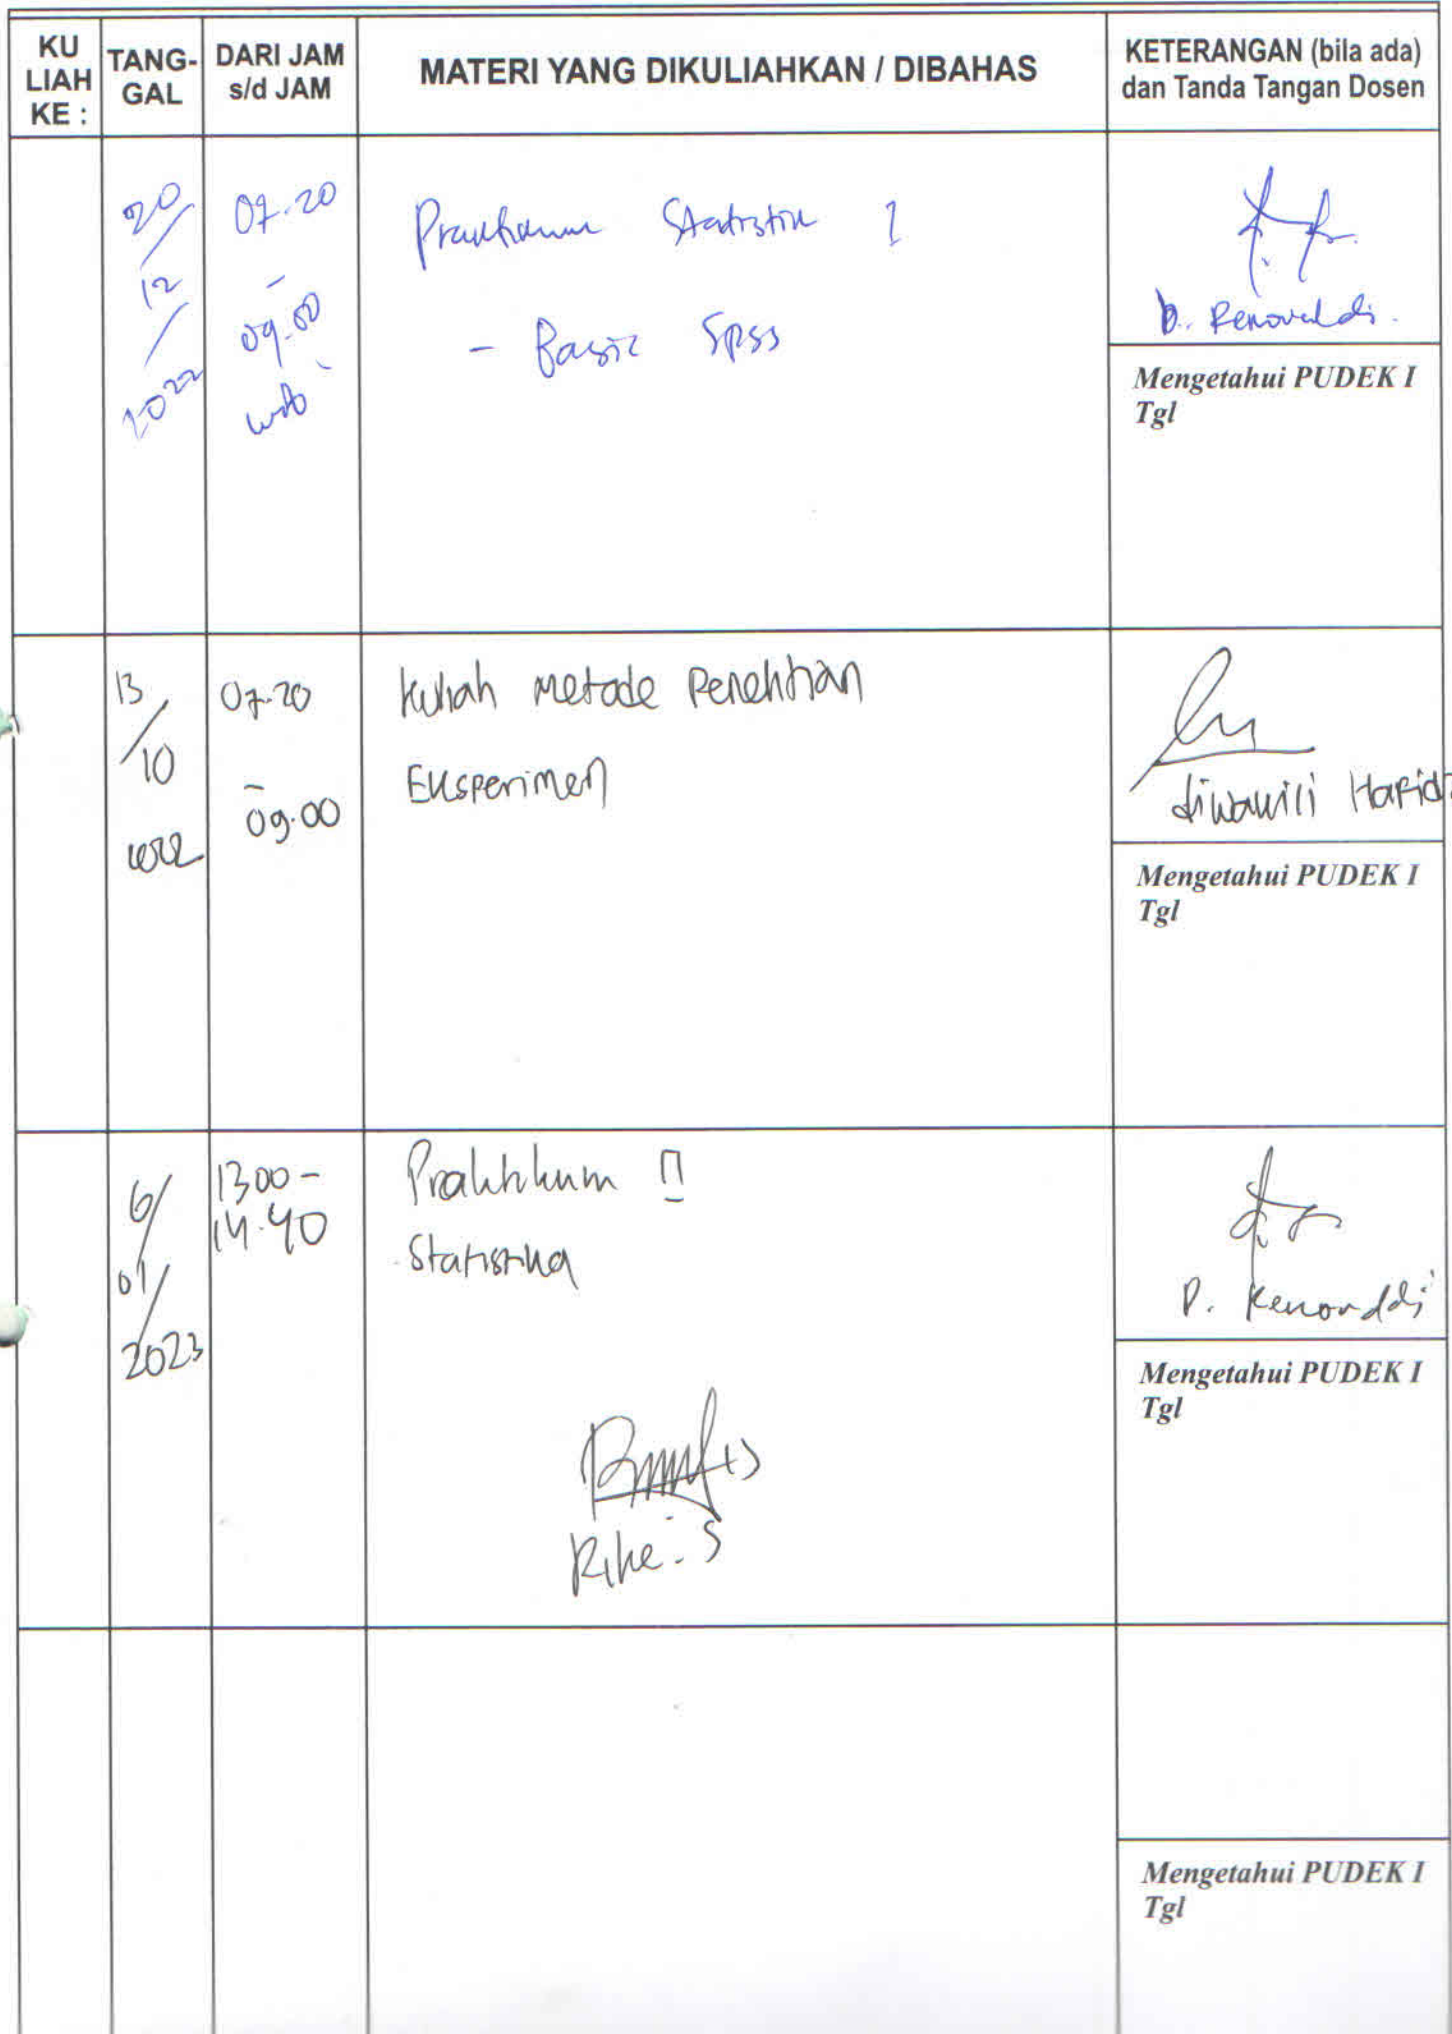 KU LIAH KE :
TANG-GAL
DARI JAM s/d JAM
MATERI YANG DIKULIAHKAN / DIBAHAS
KETERANGAN (bila ada) dan Tanda Tangan Dosen
20/12/2022
07.20
-
09.00
wib
Praktikum Statistik I
- Basic SPSS
D. Renovaldi.
Mengetahui PUDEK I
Tgl
13/10
07.20
-
09.00
Kuliah Metode Penelitian
Eksperimen
Hafidz
Mengetahui PUDEK I
Tgl
6/01/2023
1300 -
14.40
Praktikum II
Statistika
Rike. S
D. Renovaldi
Mengetahui PUDEK I
Tgl
Mengetahui PUDEK I
Tgl